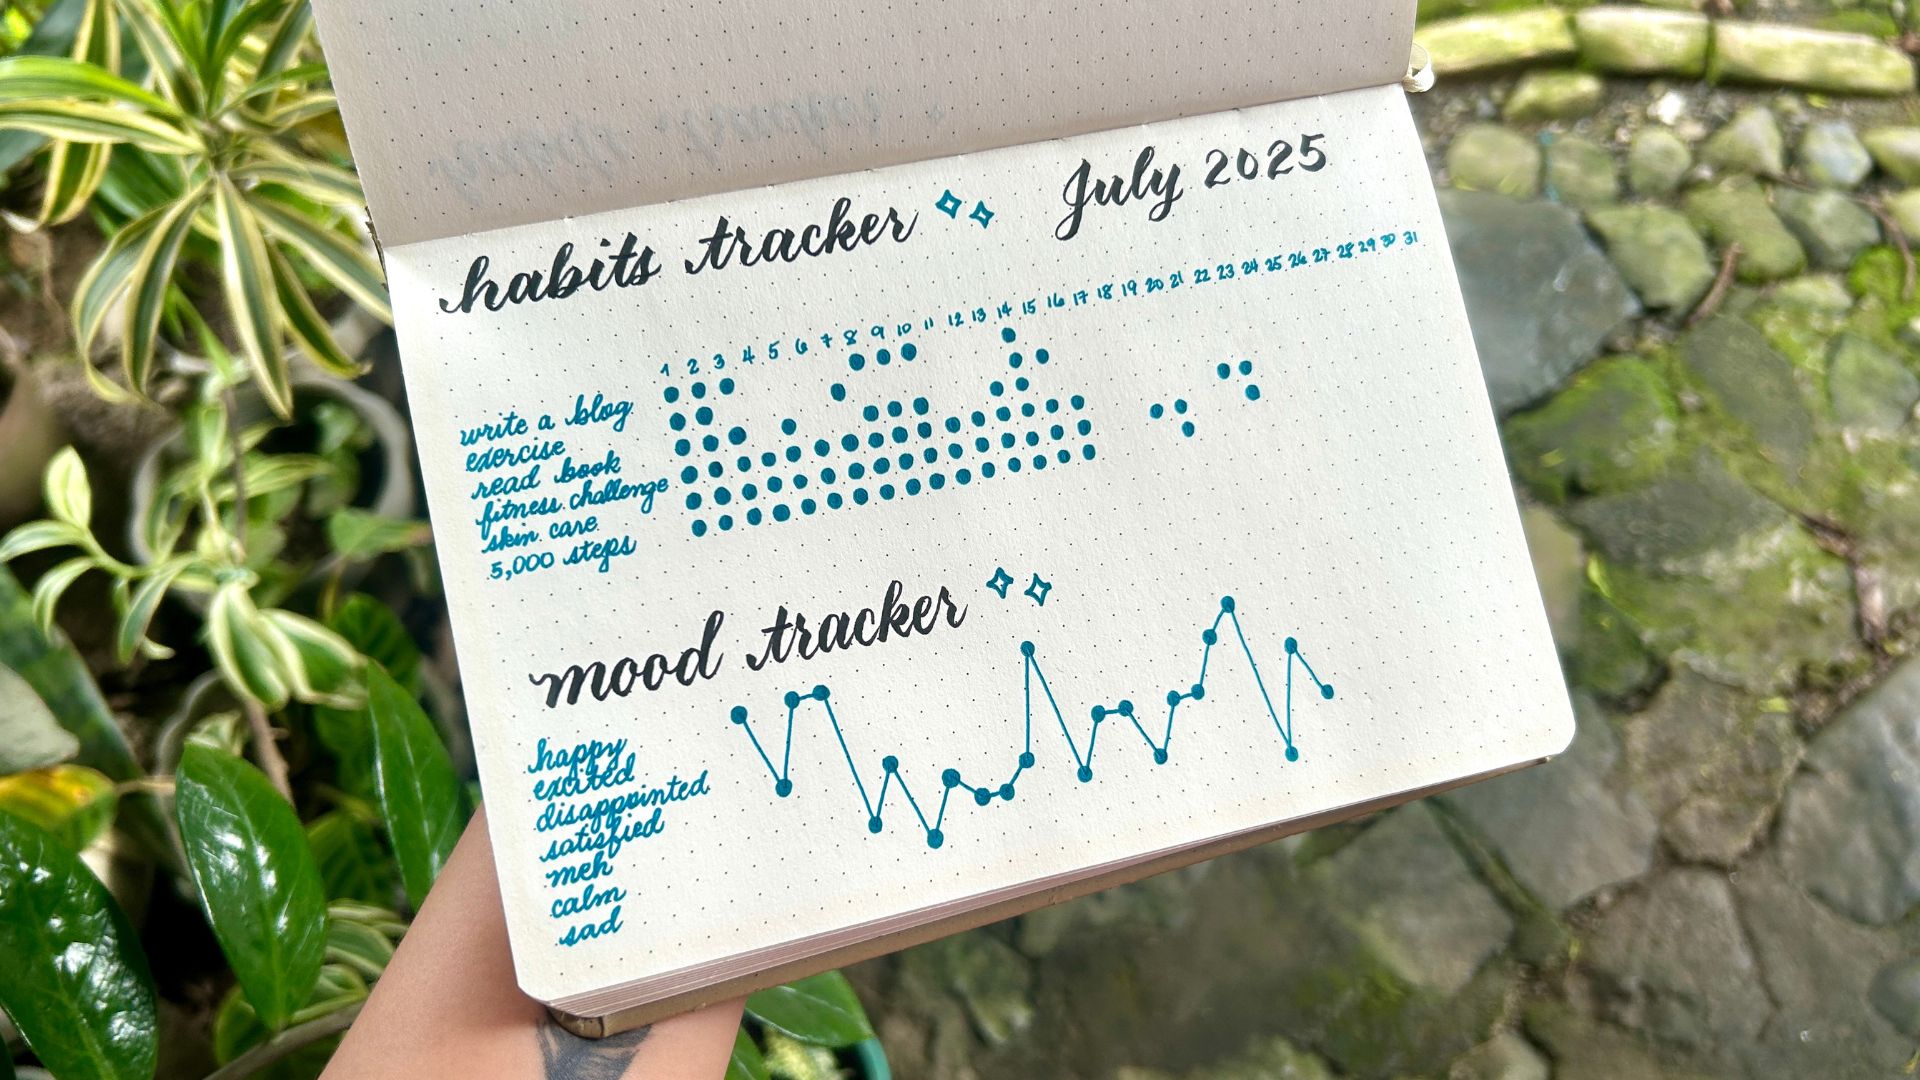 habits tracker July 2025
1 2 3 4 5 6 7 8 9 10 11 12 13 14 15 16 17 18 19 20 21 22 23 24 25 26 27 28 29 30 31
write a blog
exercise
read book
fitness challenge
skin care
5,000 steps
mood tracker
happy
excited
disappointed
satisfied
meh
calm
sad